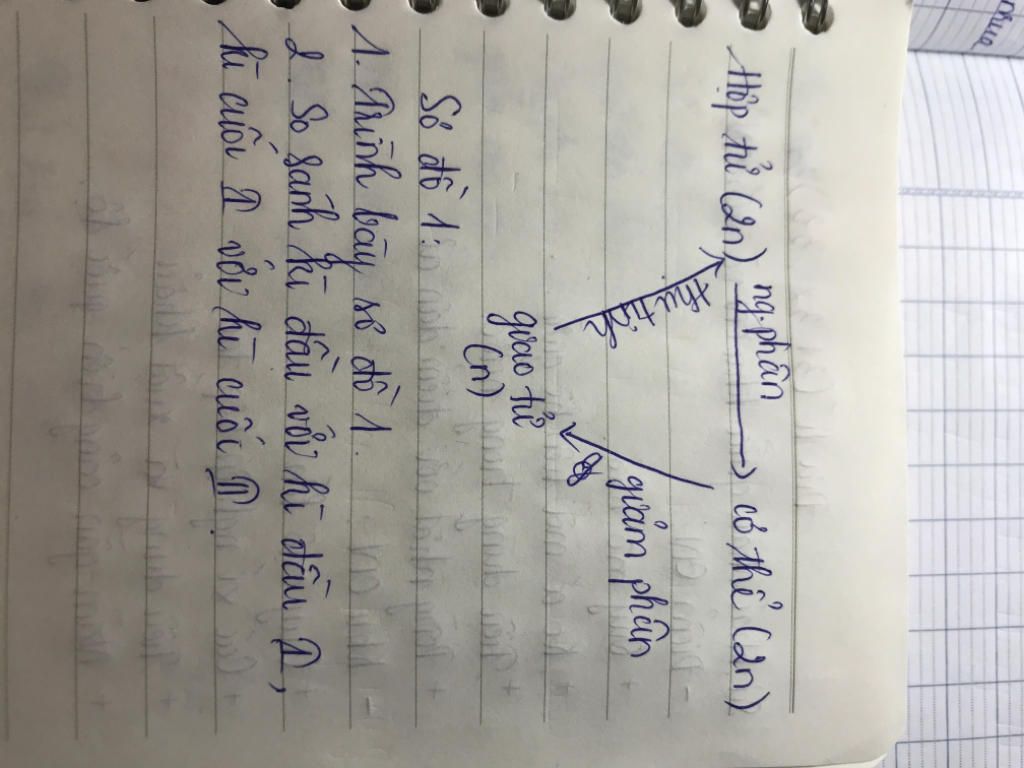 Hợp tử (2n) ng.phân cơ thể (2n)
thụ tinh
giảm phân
giao tử
(n)
Sơ đồ 1:
1. Trình bày sơ đồ 1.
2. So sánh kì đầu với kì đầu I,
kì cuối I với kì cuối II.